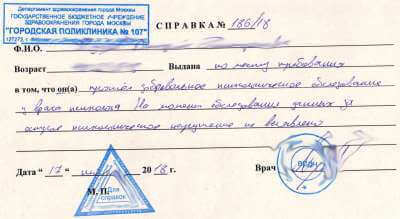 Департамент здравоохранения города Москвы
ГОСУДАРСТВЕННОЕ БЮДЖЕТНОЕ УЧРЕЖДЕНИЕ
ЗДРАВООХРАНЕНИЯ ГОРОДА МОСКВЫ
"ГОРОДСКАЯ ПОЛИКЛИНИКА № 107"
СПРАВКА № 186/18
Ф.И.О.
Возраст Выдана по месту требования
в том, что он(а) прошёл добровольное психологическое обследование
у врача психолога На момент обследования данных за
острое психологическое нарушение не выявлено
Дата " 17 " 20 18 г. Врач
М.П.
Для справок
ВРАЧ